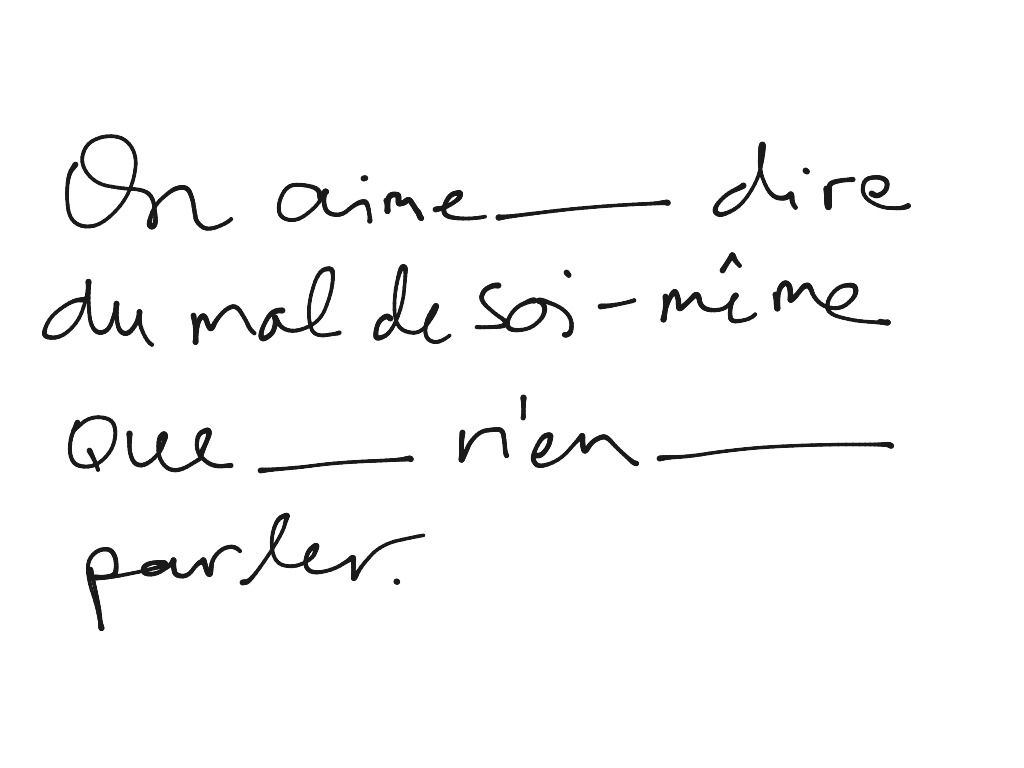 On aime ______ dire
du mal de soi-même
que _____ n'en ________
parler.